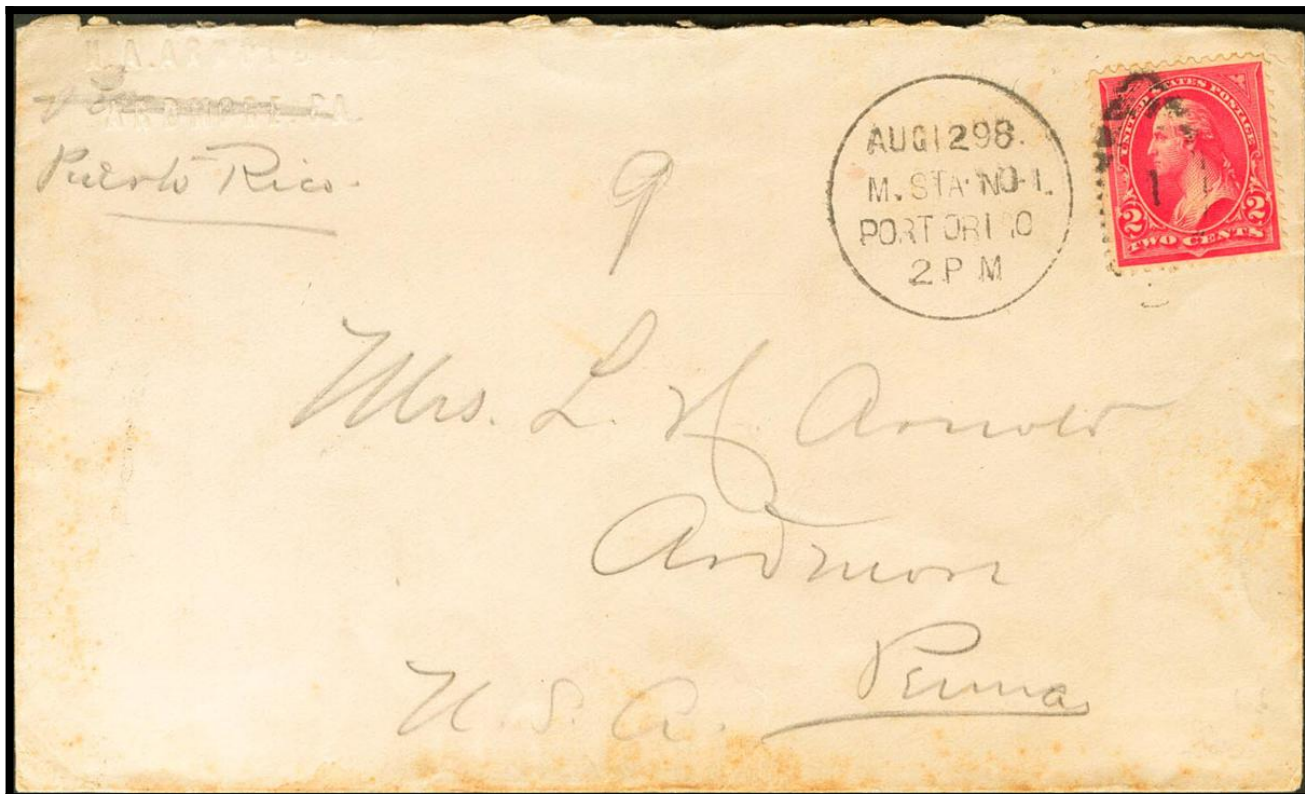 Puerto Rico.
9
AUG 12 98.
M. STA. NO 1.
PORTORICO
2 P M
UNITED STATES POSTAGE
2 2
TWO CENTS
1
Mrs. L. H. Arnold
Ardmore
Penna
U. S. A.